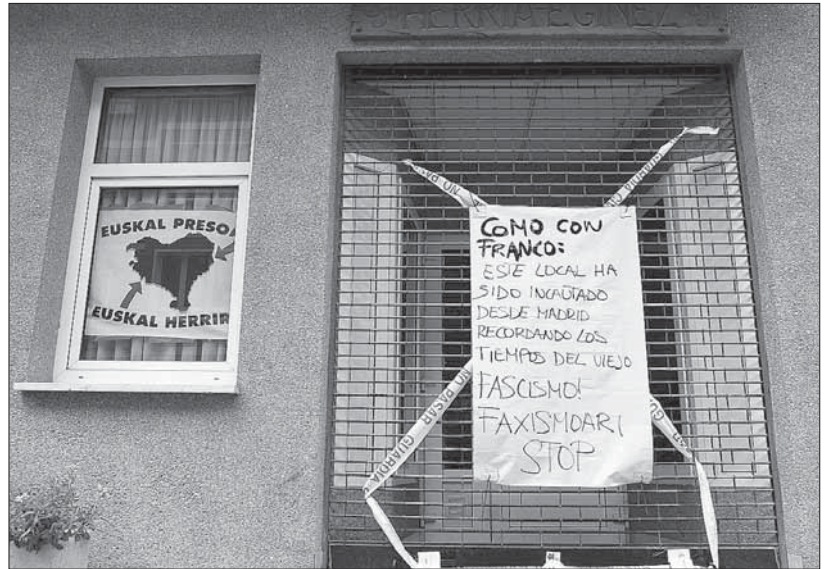 HERRIA EGINEZ
EUSKAL PRESO
EUSKAL HERRIR
NO PA
GUARDIA CI
COMO CON
FRANCO:
ESTE LOCAL HA
SIDO INCAUTADO
DESDE MADRID
RECORDANDO LOS
TIEMPOS DEL VIEJO
FASCISMO!
FAXISMOARI
STOP
NO PASAR GUARDIA
GU